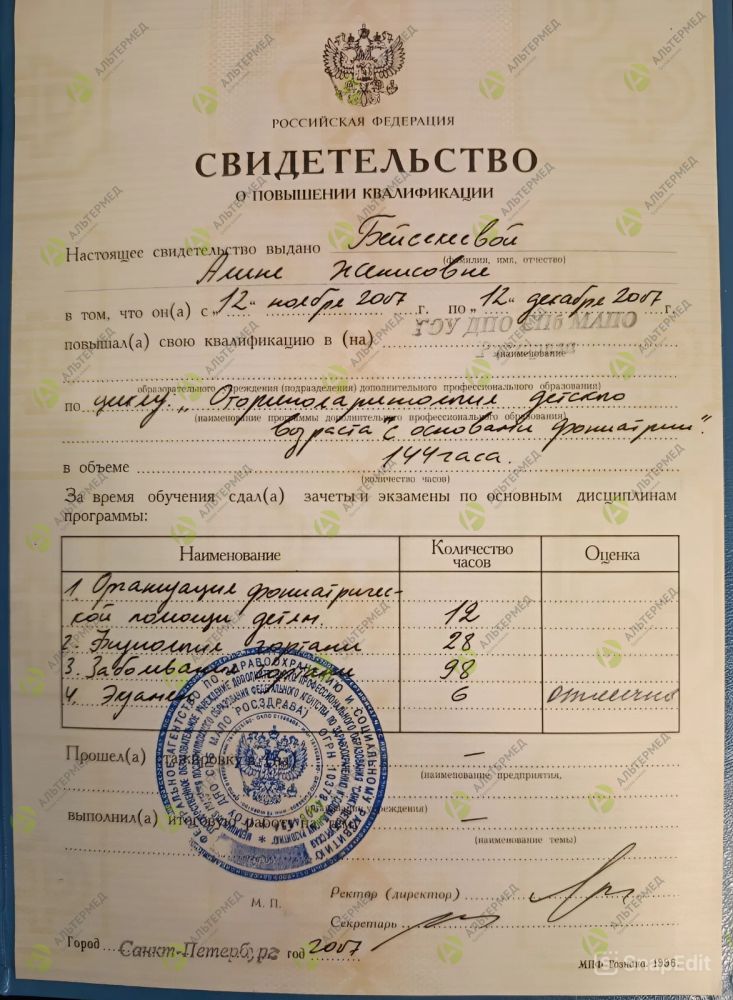 РОССИЙСКАЯ ФЕДЕРАЦИЯ
СВИДЕТЕЛЬСТВО
О ПОВЫШЕНИИ КВАЛИФИКАЦИИ
Настоящее свидетельство выдано Бейсекеевой
(фамилия, имя, отчество)
Алине Жанисовне
в том, что он(а) с „12" ноября 2007 г. по „12" декабря 2007 г.
ГОУ ДПО СПб МАПО
повышал(а) свою квалификацию в (на)
(наименование
образовательного учреждения (подразделения) дополнительного профессионального образования)
по циклу „Оториноларингология детского
(наименование программы дополнительного профессионального образования)
возраста "с основами фониатрии".
в объеме 144 часа.
(количество часов)
За время обучения сдал(а) зачеты и экзамены по основным дисциплинам
программы:
Наименование Количество часов Оценка
1. Организация фониатричес-
кой помощи детям. 12
2. Физиология гортани 28
3. Заболевания гортани 98
4. Экзамен 6 отлично
Прошел(а) стажировку в (на) –
(наименование предприятия,
учреждения)
выполнил(а) итоговую работу на тему –
(наименование темы)
М. П.
Ректор (директор)
Секретарь
Город Санкт-Петербург год 2007
МПФ Гознака. 1996.
SnapEdit
АЛЬТЕРМЕД